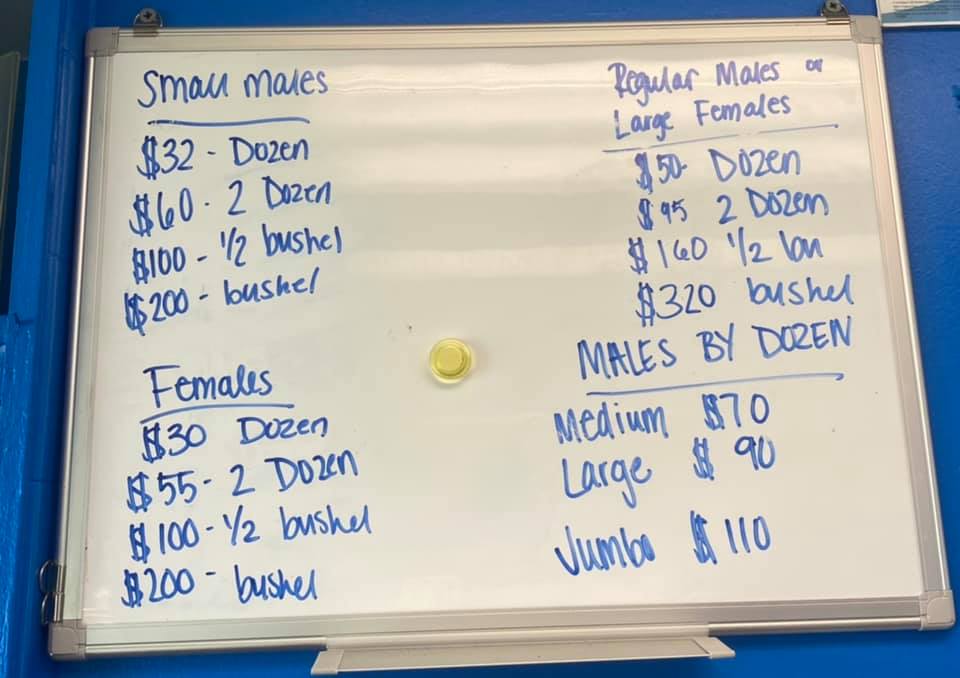 Small Males
$32 - Dozen
$60 - 2 Dozen
$100 - 1/2 bushel
$200 - bushel
Females
$30 Dozen
$55 - 2 Dozen
$100 - 1/2 bushel
$200 - bushel
Regular Males or
Large Females
$50 - Dozen
$95 2 Dozen
$160 1/2 bu
$320 bushel
MALES BY DOZEN
Medium $70
Large $90
Jumbo $110